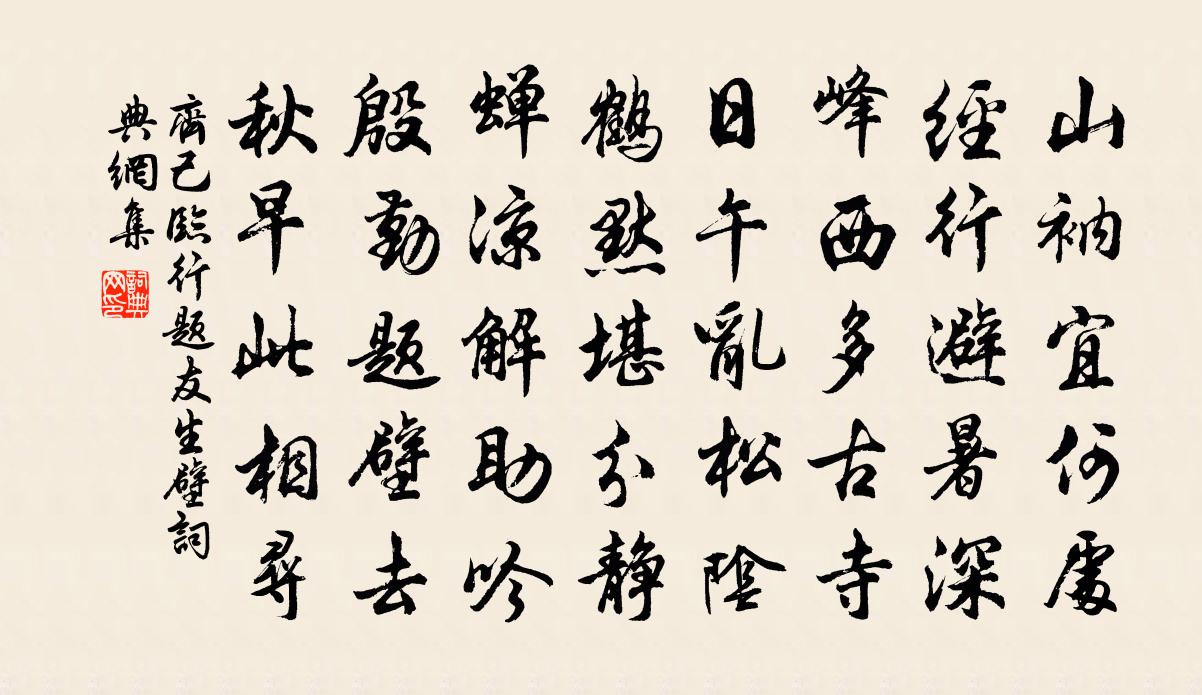 山衲宜何處
經行避暑深
峰西多古寺
日午亂松陰
鶴默堪分静
蝉涼解助吟
殷勤题壁去
秋早此相尋
齊己臨行题友生壁詞
典網集
詞典
网印